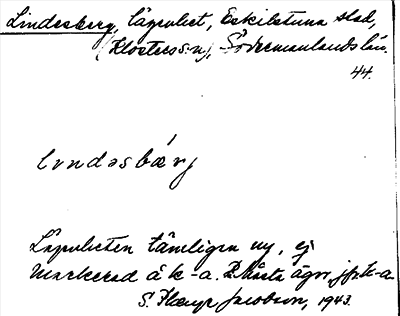 Lindesberg, lägenhet, Eskilstuna stad,
(Klosters s:n), Södermanlands län.
44.
lındəsbærj
Lägenheten tämligen ny, ej
markerad å k-a. ägor, jfr k-a.
S. Jacobson, 1943.